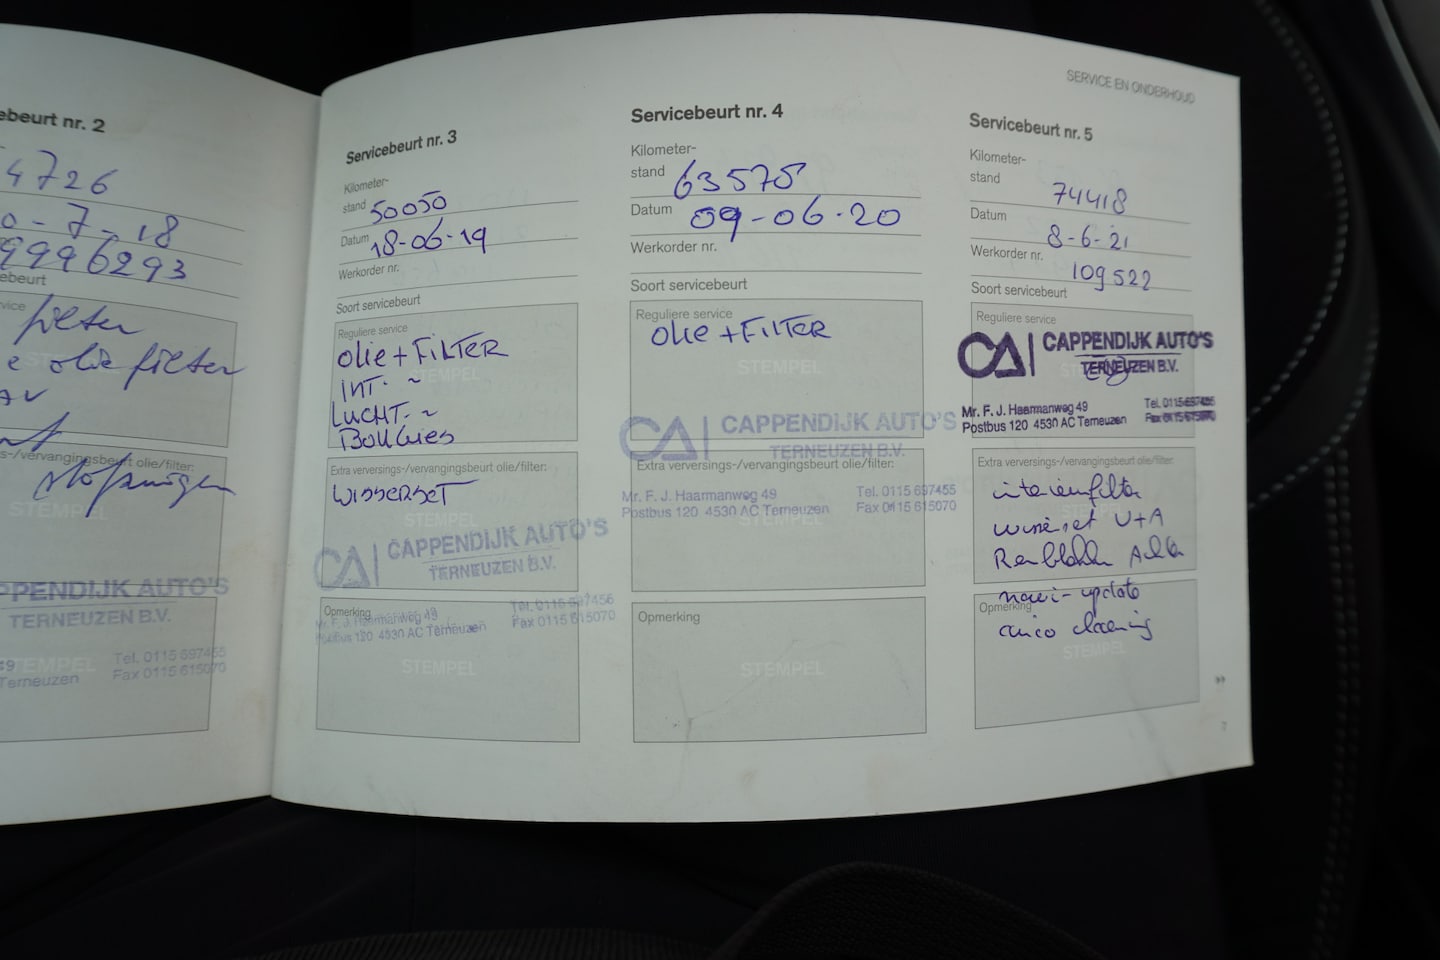 SERVICE EN ONDERHOUD
ebeurt nr. 2
4726
0-7-18
9996293
ebeurt
vice
filter
e olie filter
s-/vervangingsbeurt olie/filter:
STEMPEL
PPENDIJK AUTO'S
TERNEUZEN B.V.
49
STEMPEL
Tel. 0115 697455
Terneuzen
Fax 0115 615070
Servicebeurt nr. 3
Kilometer-
stand 50050
Datum 18-06-19
Werkorder nr.
Soort servicebeurt
Reguliere service
OLIE + FILTER
STEMPEL
INT. ~
LUCHT. ~
BOUGIES
Extra verversings-/vervangingsbeurt olie/filter:
WISSERSET
STEMPEL
CA CAPPENDIJK AUTO'S
TERNEUZEN B.V.
Opmerking
Mr. F. J. Haarmanweg 49
Tel. 0115 697455
Postbus 120 4530 AC Terneuzen
Fax 0115 615070
STEMPEL
Servicebeurt nr. 4
Kilometer-
stand 63575
Datum 09-06-20
Werkorder nr.
Soort servicebeurt
Reguliere service
OLIE + FILTER
STEMPEL
CA CAPPENDIJK AUTO'S
TERNEUZEN B.V.
Extra verversings-/vervangingsbeurt olie/filter:
Mr. F. J. Haarmanweg 49
Tel. 0115 697455
Postbus 120 4530 AC Terneuzen
Fax 0115 615070
STEMPEL
Opmerking
STEMPEL
Servicebeurt nr. 5
Kilometer-
stand
74418
Datum
8-6-21
Werkorder nr.
109522
Soort servicebeurt
Reguliere service
CA CAPPENDIJK AUTO'S
TERNEUZEN B.V.
Mr. F. J. Haarmanweg 49
Tel. 0115 697455
Postbus 120 4530 AC Terneuzen
Fax 0115 615070
Extra verversings-/vervangingsbeurt olie/filter:
interieurfilter
V+A
navi-update
Opmerking
airco cleaning
STEMPEL
7